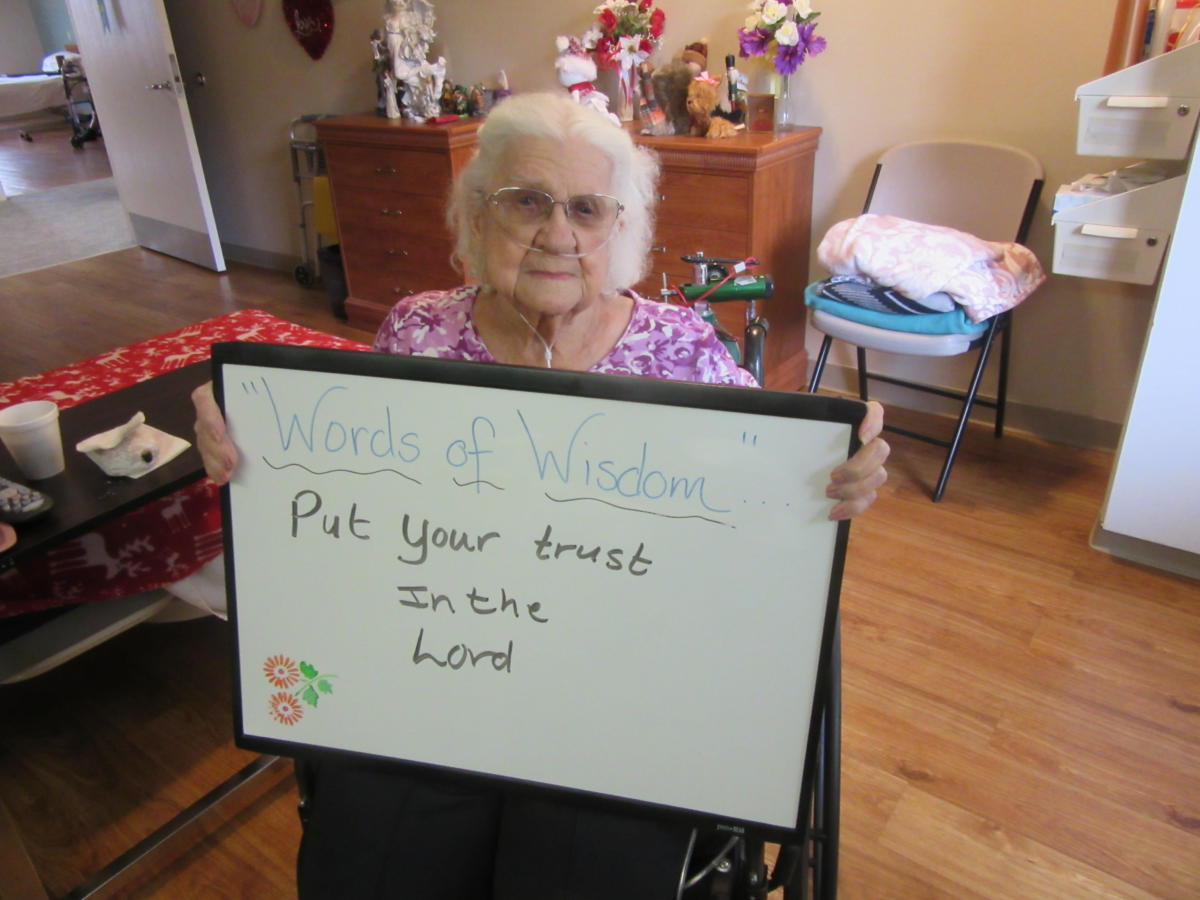 "Words of Wisdom" ....
Put your trust
In the
Lord